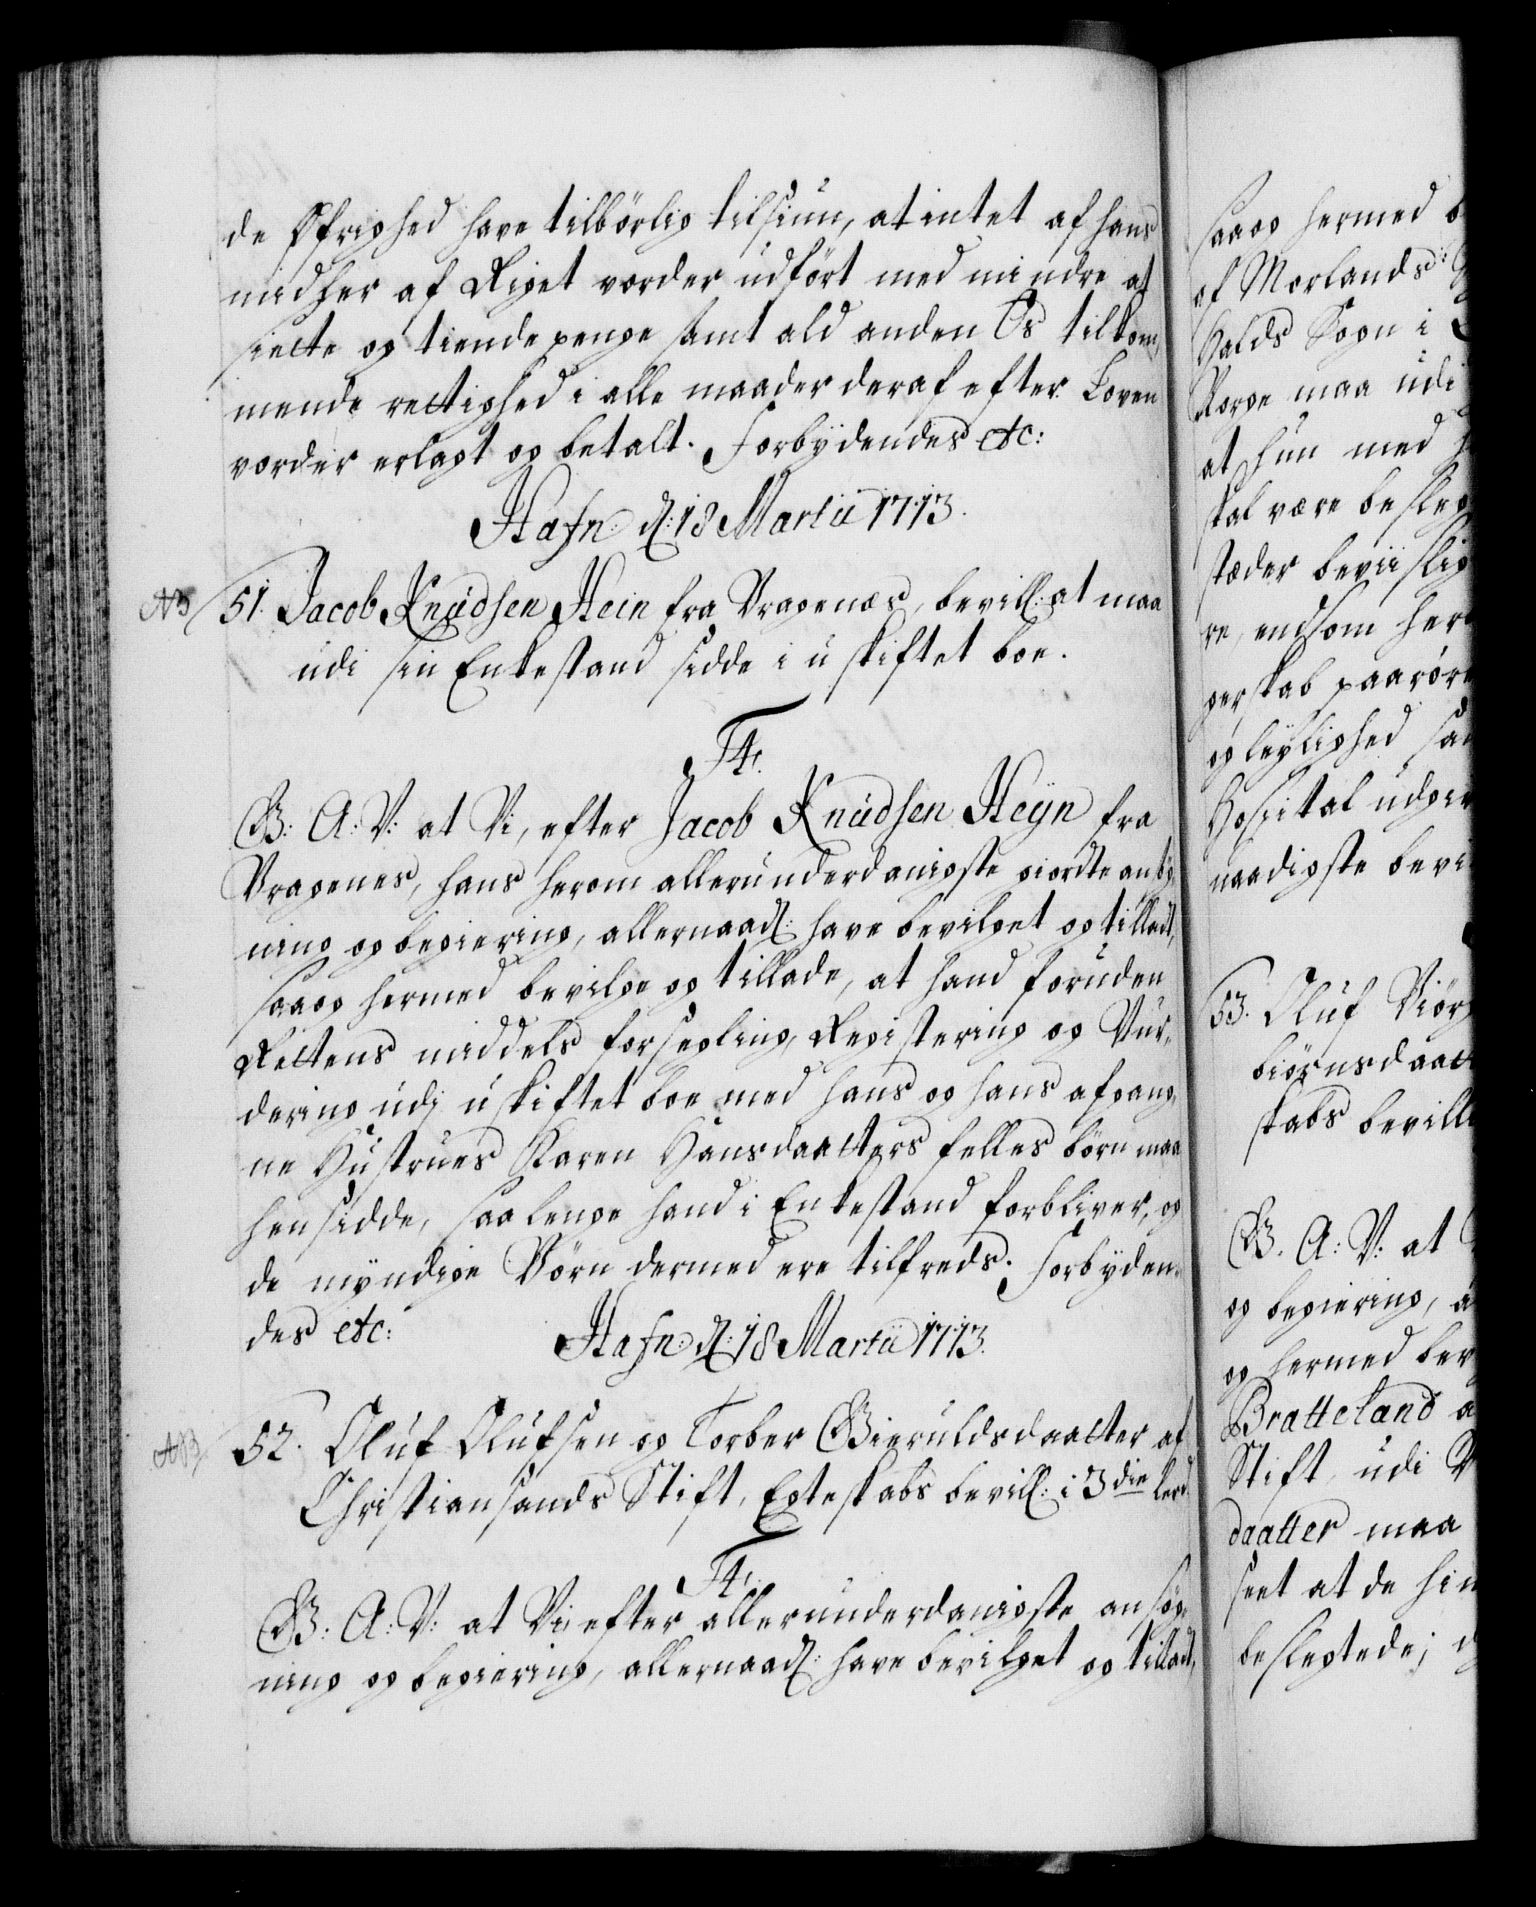 de Øfrighed have tilbørlig tilsiun, at intet af hans
midher af Riget vorder udført med mindre at
siette og tiende penge samt ald anden Os tilkom,
mende rettighed i alle maader deraf efter Loven
vorder erlagt og betalt. Forbydendes etc:
Hafn: d: 18 Martii 1713.
NB 51. Jacob Knudsen Hein fra Vragenæs, bevill: at maa
udi sin Enkestand sidde i uskiftet boe.
F4.
G: A: V: at Vi, efter Jacob Knudsen Heyn fra
Vragenes, hans herom allerunderdanigste giordte ansøg,
ning og begiering, allernaad: have bevilget og tilladt,
saa og hermed bevilge og tillade, at hand foruden
Rettens middels forsegling, Registering og Vur,
dering udj uskiftet boe med hans og hans afgang,
ne Hustrues Karen Hansdaatters felles børn maa
hensidde, saa lenge hand i Enkestand forbliver, og
de myndige Børn dermed ere tilfreds. Forbyden,
des etc: Hafn: d: 18 Martii 1713.
NB 52. Oluf Olufsen og Torber Gieruldsdaatter af
Christiansands Stift, Egteskabs bevill: i 3die leed.
F4.
G: A: V: at Vi, efter allerunderdanigste ansøg,
ning og begiering, allernaad: have bevilget og tilladt,
saa og hermed
af Morlands
Halds Sogn i
Norge maa udi
at hun med
skal være besleg
stæder beviislig
re, endsom her
gerskab paarør
og leylighed
Hospital udgiv
naadigste bevi
53. Oluf Biør
biørnsdaatt
skabs bevill
G. A: V: at
og begiering, a
og hermed bev
Bratteland a
Stift, udi
daatter maa
seet at de hin
beslegtede; d